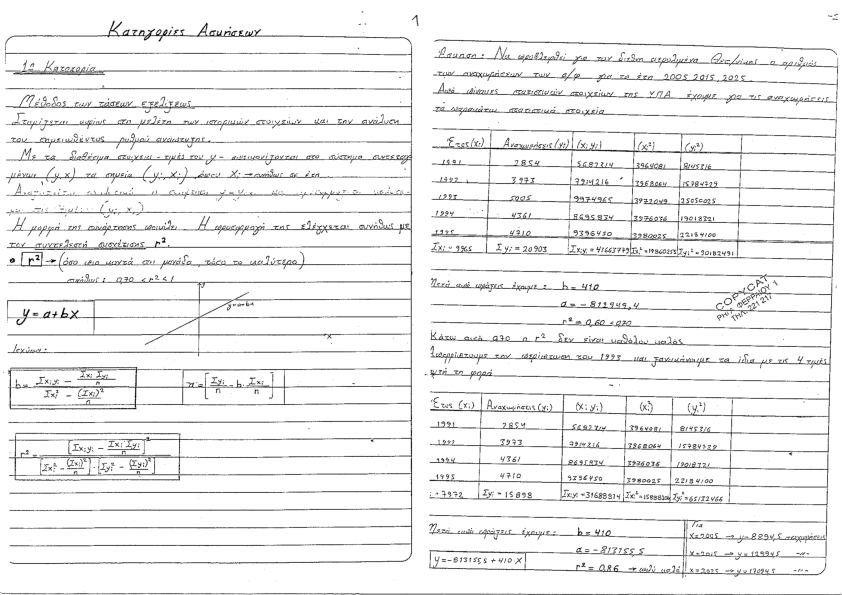 Κατηγορίες Ασκήσεων
1
1η Κατηγορία
Μέθοδος των τάσεων εξελίξεως
Στηρίζεται κυρίως στη μελέτη των ιστορικών στοιχείων και την ανάλυση
του σημειωθέντος ρυθμού αναπτυξης.
Με τα διαθέσιμα στοιχεια - τιμές του y - απεικονίζονται στο σύστημα συντεταγ-
μένων (y,x) τα σημεία (yi, xi), όπου xi → συνήθως σε έτη
(yi, xi)
Η μορφή της συνάρτησης ποικίλει. Η προσαρμογή της ελέγχεται συνήθως με
τον συντελεστή συσχέτισης r².
• r² → (όσο πιο κοντά στη μονάδα, τόσο το καλύτερο)
συνήθως: 0,70 < r² < 1
y = a+bx
y=a+bx
y
x
Ισχύουν:
b = Σxiyi - Σxi Σyi / n / Σxi² - (Σxi)² / n
= [Σyi / n - b · Σxi / n]
r² = [Σxiyi - Σxi·Σyi / n]² / [Σxi² - (Σxi)² / n]·[Σyi² - (Σyi)² / n]
Άσκηση: Να προβλεφθεί για τον διεθνή αερολιμένα Θεσ/νίκης ο αριθμός
των αναχωρήσεων των α/φ για τα έτη 2005, 2015, 2025
Από πίνακες στατιστικών στοιχείων της ΥΠΑ έχουμε για τις αναχωρήσεις
τα παρακάτω στατιστικά στοιχεία
Έτος (xi) Αναχωρήσεις (yi) (xi yi) (xi²) (yi²)
1991 2854 5682314 3964081 8145316
1992 3973 7914216 3968064 15784729
1993 5005 9974965 3972049 25050025
1994 4361 8695834 3976036 19018321
1995 4710 9396450 3980025 22184100
Σxi = 9965 Σyi = 20903 Σxiyi = 41663779 Σxi²=19860255 Σyi²=90182491
Μετά από πράξεις έχουμε: b = 410
a = -812949,4
r² = 0,60 < 0,70
COPYCAT
ΡΗΓ. ΦΕΡΡΑΙΟΥ 1
Κάτω από 0,70 η r² δεν είναι καθόλου καλός
Απορρίπτουμε την περίπτωση του 1993 και ξανακάνουμε τα ίδια με τις 4 τιμές
αυτή τη φορά
Έτος (xi) Αναχωρήσεις (yi) (xi yi) (xi²) (yi²)
1991 2854 5682314 3964081 8145316
1992 3973 7914216 3968064 15784729
1994 4361 8695834 3976036 19018321
1995 4710 9396450 3980025 22184100
:=7972 Σyi = 15898 Σxiyi = 31688814 Σxi²=15888206 Σyi²=65132466
Μετά από πράξεις έχουμε: b = 410
a = -813155,5
y = -813155,5 + 410 X
r² = 0,86 → πολύ καλό
Για
X=2005 → y = 8894,5 αναχωρήσεις
X=2015 → y = 12994,5 -»-
X=2025 → y = 17094,5 -»-